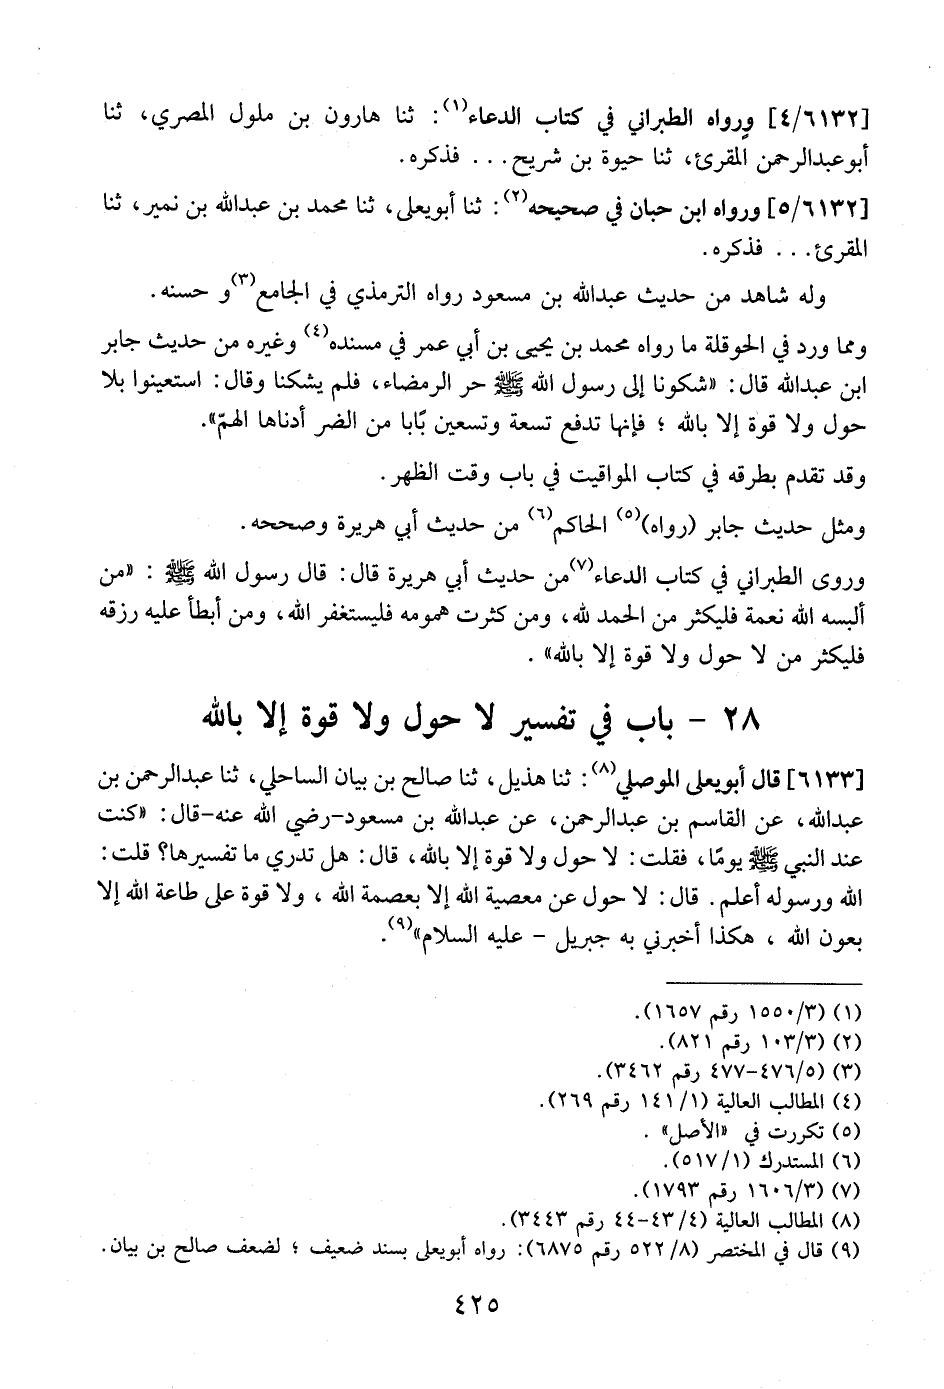 [٤/٦١٣٢] ورواه الطبراني في كتاب الدعاء(١): ثنا هارون بن ملول المصري، ثنا
أبوعبدالرحمن المقرئ، ثنا حيوة بن شريح... فذكره.
[٥/٦١٣٢] ورواه ابن حبان في صحيحه(٢): ثنا أبويعلى، ثنا محمد بن عبدالله بن نمير، ثنا
المقرئ... فذكره.
وله شاهد من حديث عبدالله بن مسعود رواه الترمذي في الجامع(٣) و حسنه.
ومما ورد في الحوقلة ما رواه محمد بن يحيى بن أبي عمر في مسنده(٤) وغيره من حديث جابر
ابن عبدالله قال: «شكونا إلى رسول الله ﷺ حر الرمضاء، فلم يشكنا وقال: استعينوا بلا
حول ولا قوة إلا بالله ؛ فإنها تدفع تسعة وتسعين بًابا من الضر أدناها الهمّ».
وقد تقدم بطرقه في كتاب المواقيت في باب وقت الظهر.
ومثل حديث جابر (رواه)(٥) الحاكم(٦) من حديث أبي هريرة وصححه.
وروى الطبراني في كتاب الدعاء(٧) من حديث أبي هريرة قال: قال رسول الله ﷺ : «من
ألبسه الله نعمة فليكثر من الحمد لله، ومن كثرت همومه فليستغفر الله، ومن أبطأ عليه رزقه
فليكثر من لا حول ولا قوة إلا بالله» .
٢٨ - باب في تفسير لا حول ولا قوة إلا بالله
[٦١٣٣] قال أبويعلى الموصلي(٨): ثنا هذيل، ثنا صالح بن بيان الساحلي، ثنا عبدالرحمن بن
عبدالله، عن القاسم بن عبدالرحمن، عن عبدالله بن مسعود-رضي الله عنه-قال: «كنت
عند النبي ﷺ يومًا، فقلت: لا حول ولا قوة إلا بالله، قال: هل تدري ما تفسيرها؟ قلت:
الله ورسوله أعلم. قال: لا حول عن معصية الله إلا بعصمة الله ، ولا قوة على طاعة الله إلا
بعون الله ، هكذا أخبرني به جبريل - عليه السلام»(٩).
(١) (١٥٥٠/٣ رقم ١٦٥٧).
(٢) (١٠٣/٣ رقم ٨٢١).
(٣) (٤٧٦/٥-٤٧٧ رقم ٣٤٦٢).
(٤) المطالب العالية (١٤١/١ رقم ٢٦٩).
(٥) تكررت في «الأصل» .
(٦) المستدرك (٥١٧/١).
(٧) (١٦٠٦/٣ رقم ١٧٩٣).
(٨) المطالب العالية (٤٣/٤-٤٤ رقم ٣٤٤٣).
(٩) قال في المختصر (٥٢٢/٨ رقم ٦٨٧٥): رواه أبويعلى بسند ضعيف ؛ لضعف صالح بن بيان.
٤٢٥